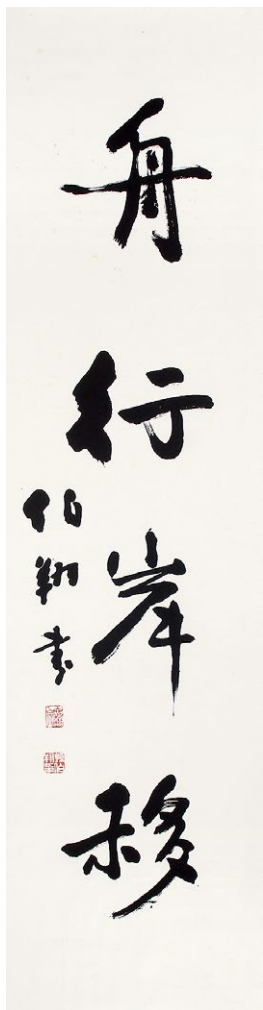 舟行岸移
伯翔书